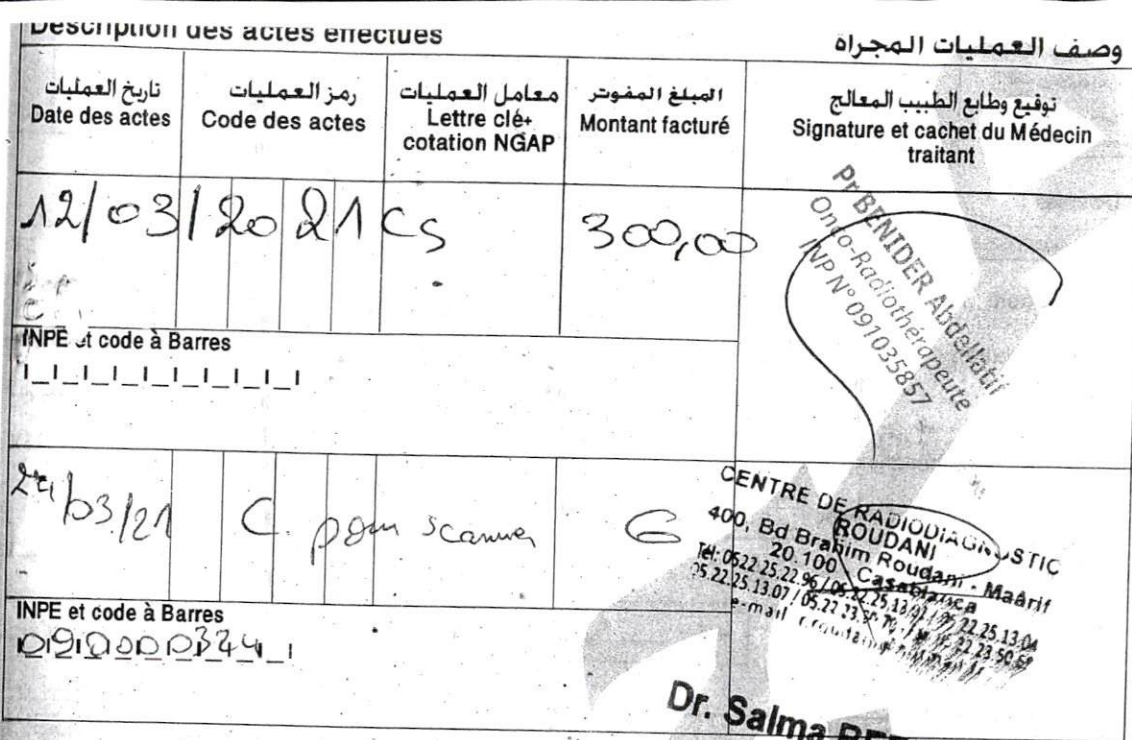 Description des actes effectués
وصف العمليات المجراة
تاريخ العمليات
Date des actes
رمز العمليات
Code des actes
معامل العمليات
Lettre clé+
cotation NGAP
المبلغ المفوتر
Montant facturé
توقيع وطابع الطبيب المعالج
Signature et cachet du Médecin
traitant
12/03/2021 CS 300,00
Pr BENIDER Abdellatif
Onco-Radiothérapeute
INP N° 091035857
INPE et code à Barres
/03/21 C. pour scanner G
CENTRE DE RADIODIAGNOSTIC
ROUDANI
400, Bd Brahim Roudani - Maârif
20.100 Casablanca
Tél: 0522.25.22.96 / 05.22.25.13.
05.22.25.13.07 / 05.22.23.
e-mail
INPE et code à Barres
090000324
Dr. Salma